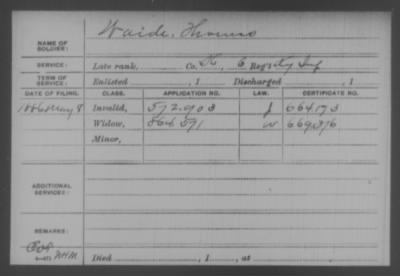 Waide, Thomas
NAME OF SOLDIER:
SERVICE: Late rank, Co. K, 6 Reg't Ky Inf
TERM OF SERVICE: Enlisted , 1 Discharged , 1
DATE OF FILING. CLASS. APPLICATION NO. LAW. CERTIFICATE NO.
1886 May 8 Invalid, 572.903 J 664.173
Widow, 864.591 W 669.376
Minor,
ADDITIONAL SERVICES:
REMARKS:
Died , 1 , at